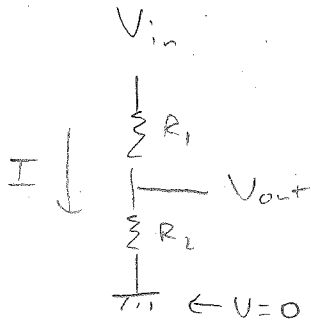 V_in
R_1
I
V_out
R_2
← V=0